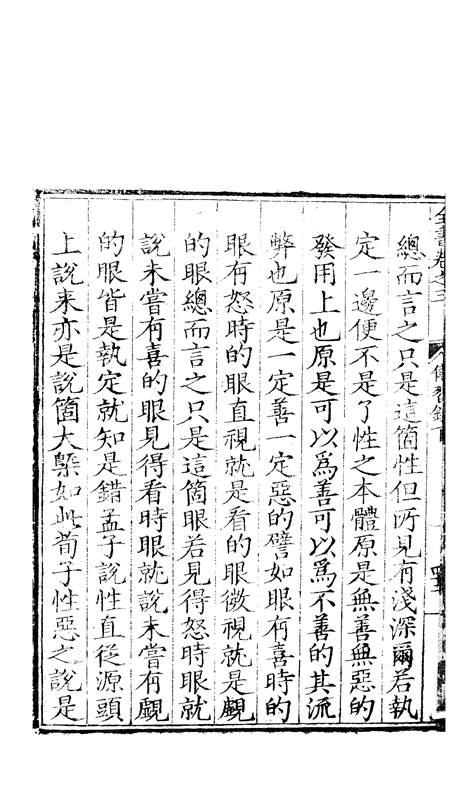 全書卷之三 傳習錄下
總而言之只是這箇性但所見有淺深爾若執
定一邊便不是了性之本體原是無善無惡的
發用上也原是可以爲善可以爲不善的其流
弊也原是一定善一定惡的譬如眼有喜時的
眼有怒時的眼直視就是看的眼微視就是覷
的眼總而言之只是這箇眼若見得怒時眼就
說未嘗有喜的眼見得看時眼就說未嘗有覷
的眼皆是執定就知是錯孟子說性直從源頭
上說来亦是說箇大槩如此荀子性惡之說是